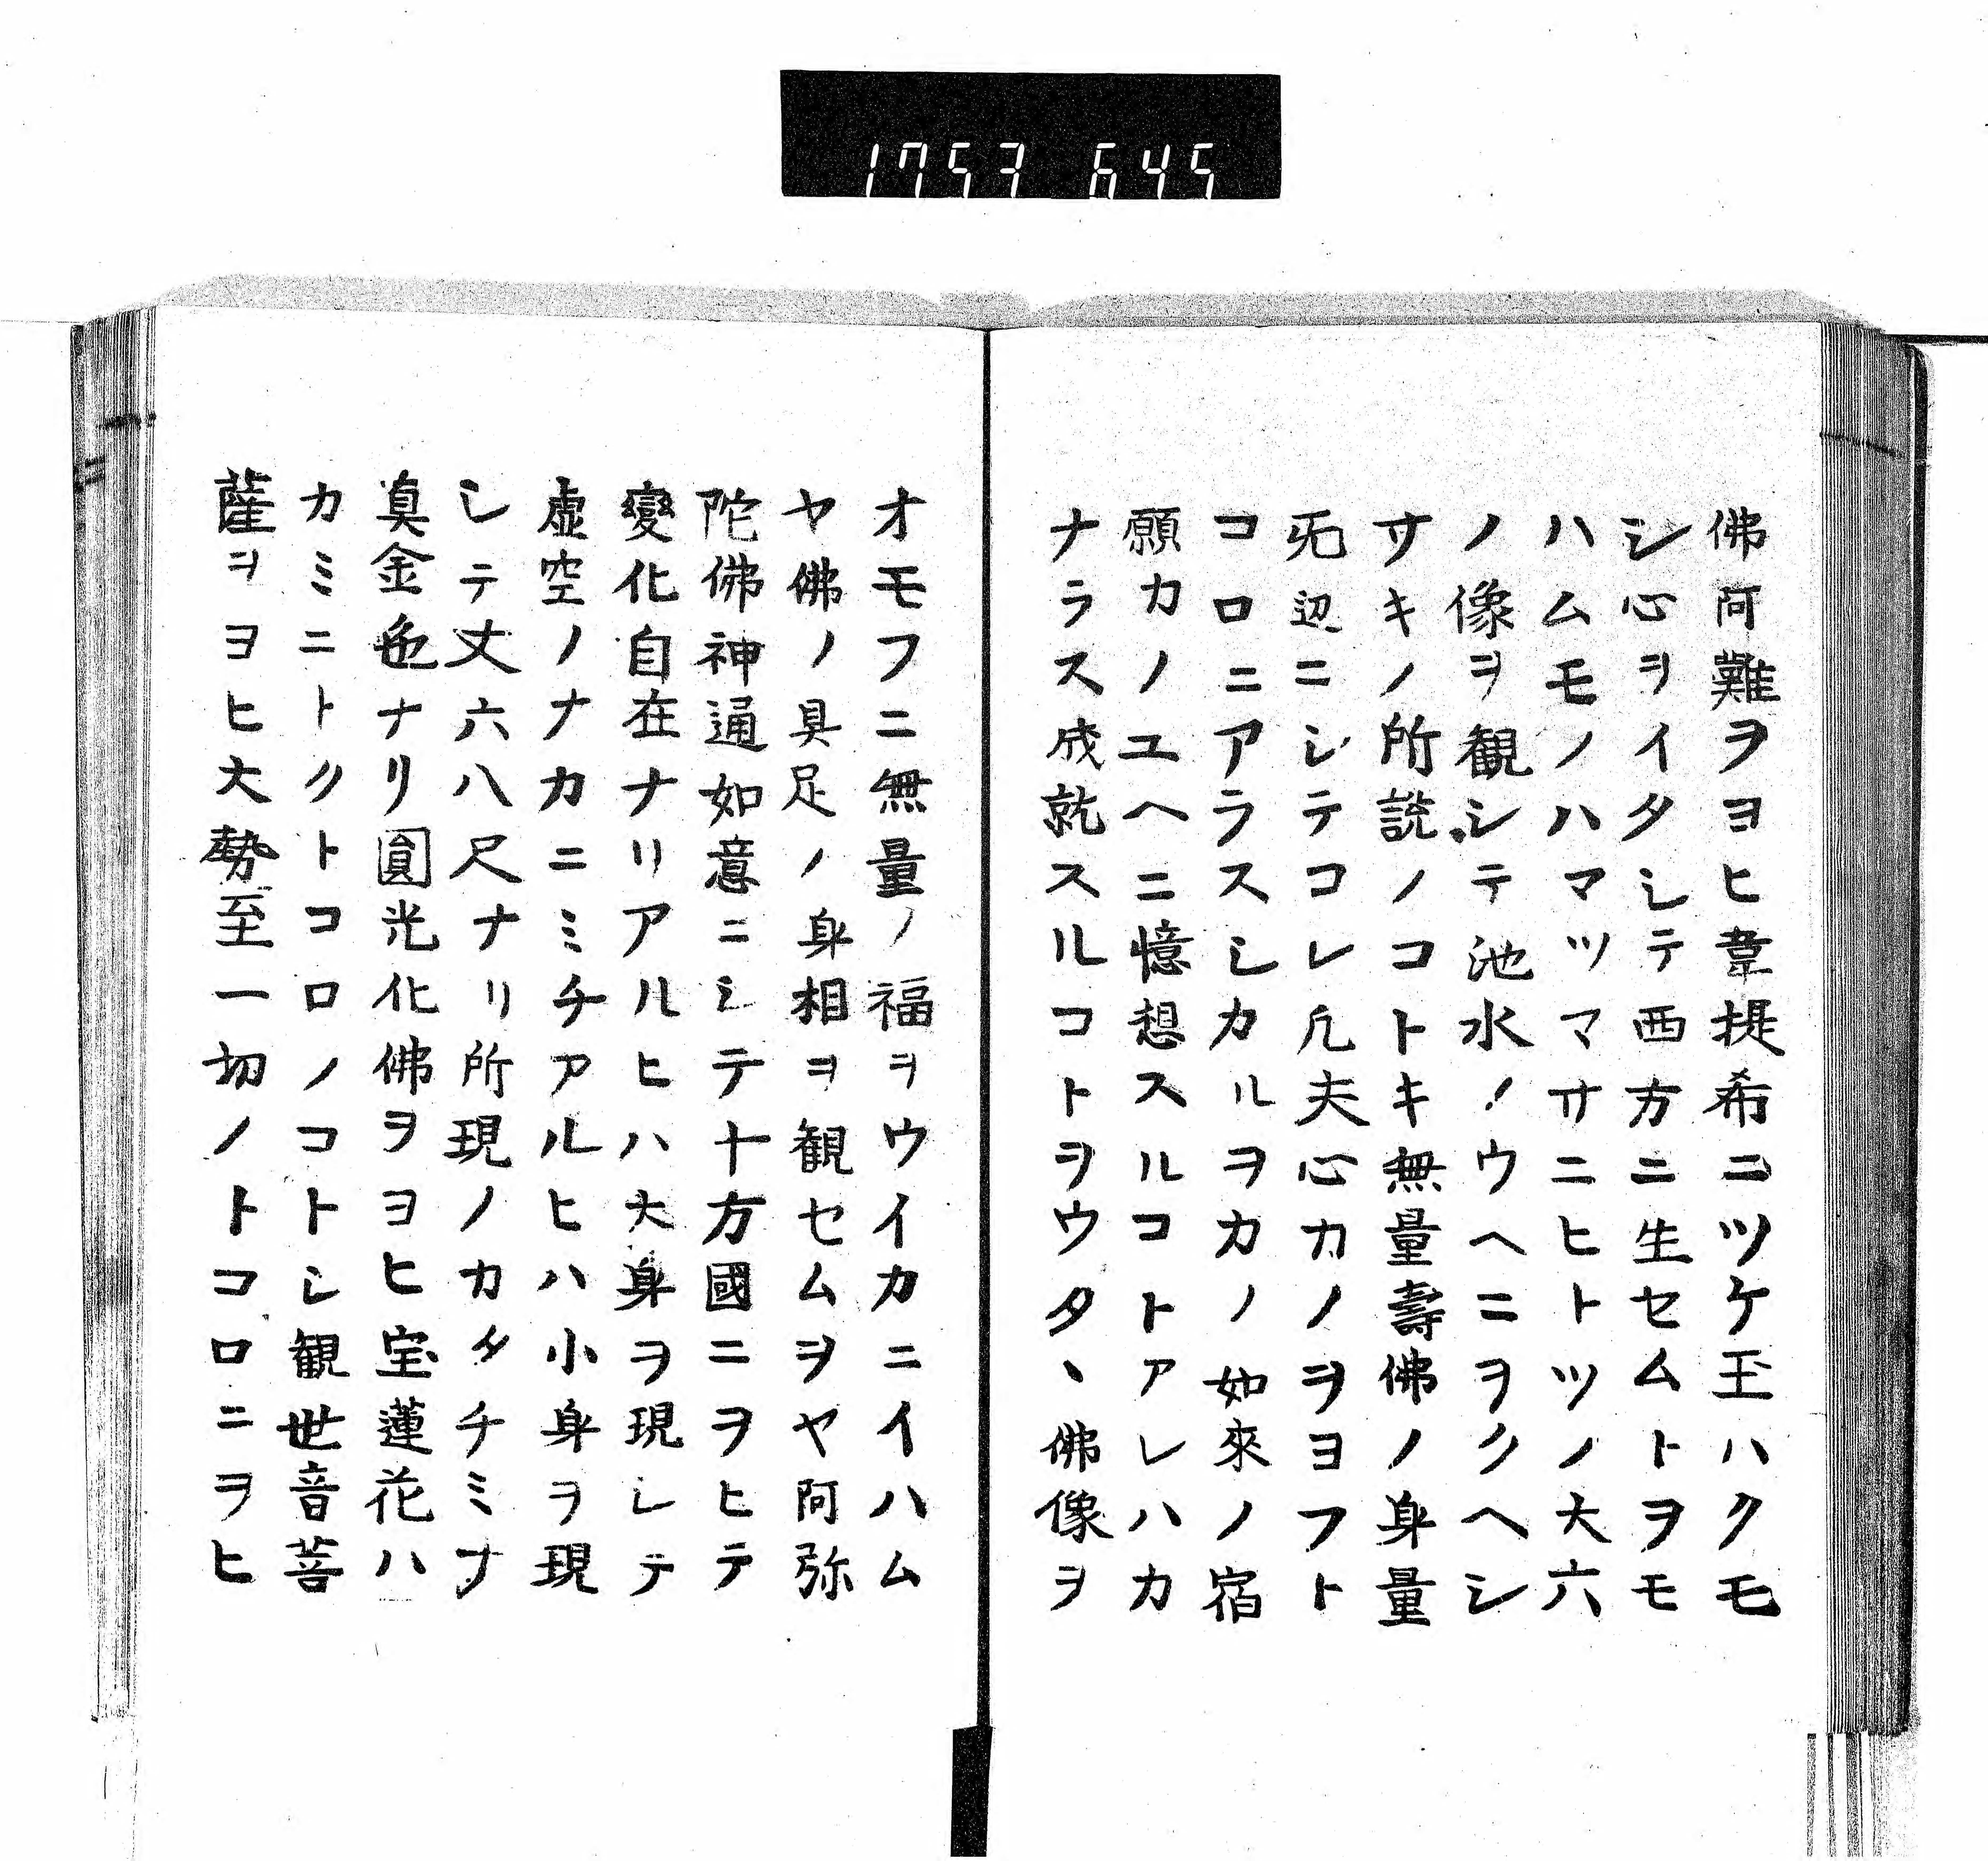 1753 645
佛阿難ヲヨヒ韋提希ニツケ玉ハクモ
シ心ヲイタシテ西方ニ生セムトヲモ
ハムモノハマツマサニヒトツノ大六
ノ像ヲ観シテ池水ノウヘニヲクヘシ
サキノ所説ノコトキ無量壽佛ノ身量
旡辺ニシテコレ凢夫心カノヲヨフト
コロニアラスシカルヲカノ如來ノ宿
願カノユヘニ憶想スルコトアレハカ
ナラス成就スルコトヲウタヽ佛像ヲ
オモフニ無量ノ福ヲウイカニイハム
ヤ佛ノ具足ノ身相ヲ観セムヲヤ阿弥
陀佛神通如意ニシテ十方國ニヲヒテ
變化自在ナリアルヒハ大身ヲ現シテ
虚空ノナカニミチアルヒハ小身ヲ現
シテ丈六八尺ナリ所現ノカタチミナ
真金色ナリ圓光化佛ヲヨヒ宝蓮花ハ
カミニトクトコロノコトシ観世音菩
薩ヲヨヒ大勢至一切ノトコロニヲヒ